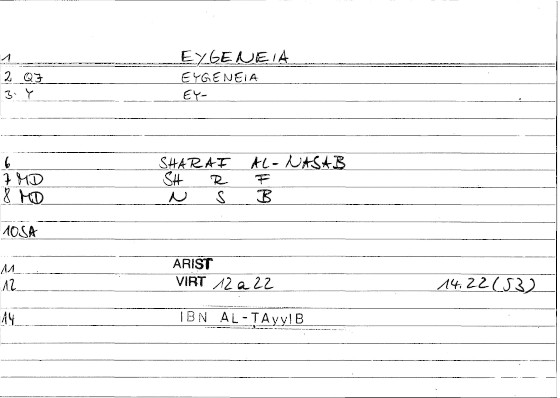 1 EYGENEIA
2 Q7 EYGENEIA
3. Y EY-
6 SHARAF AL-NASAB
7 MD SH R F
8 MD N S B
10 SA
11 ARIST
12 VIRT 12 a 22 14.22 (53)
14 IBN AL-TAyyIB